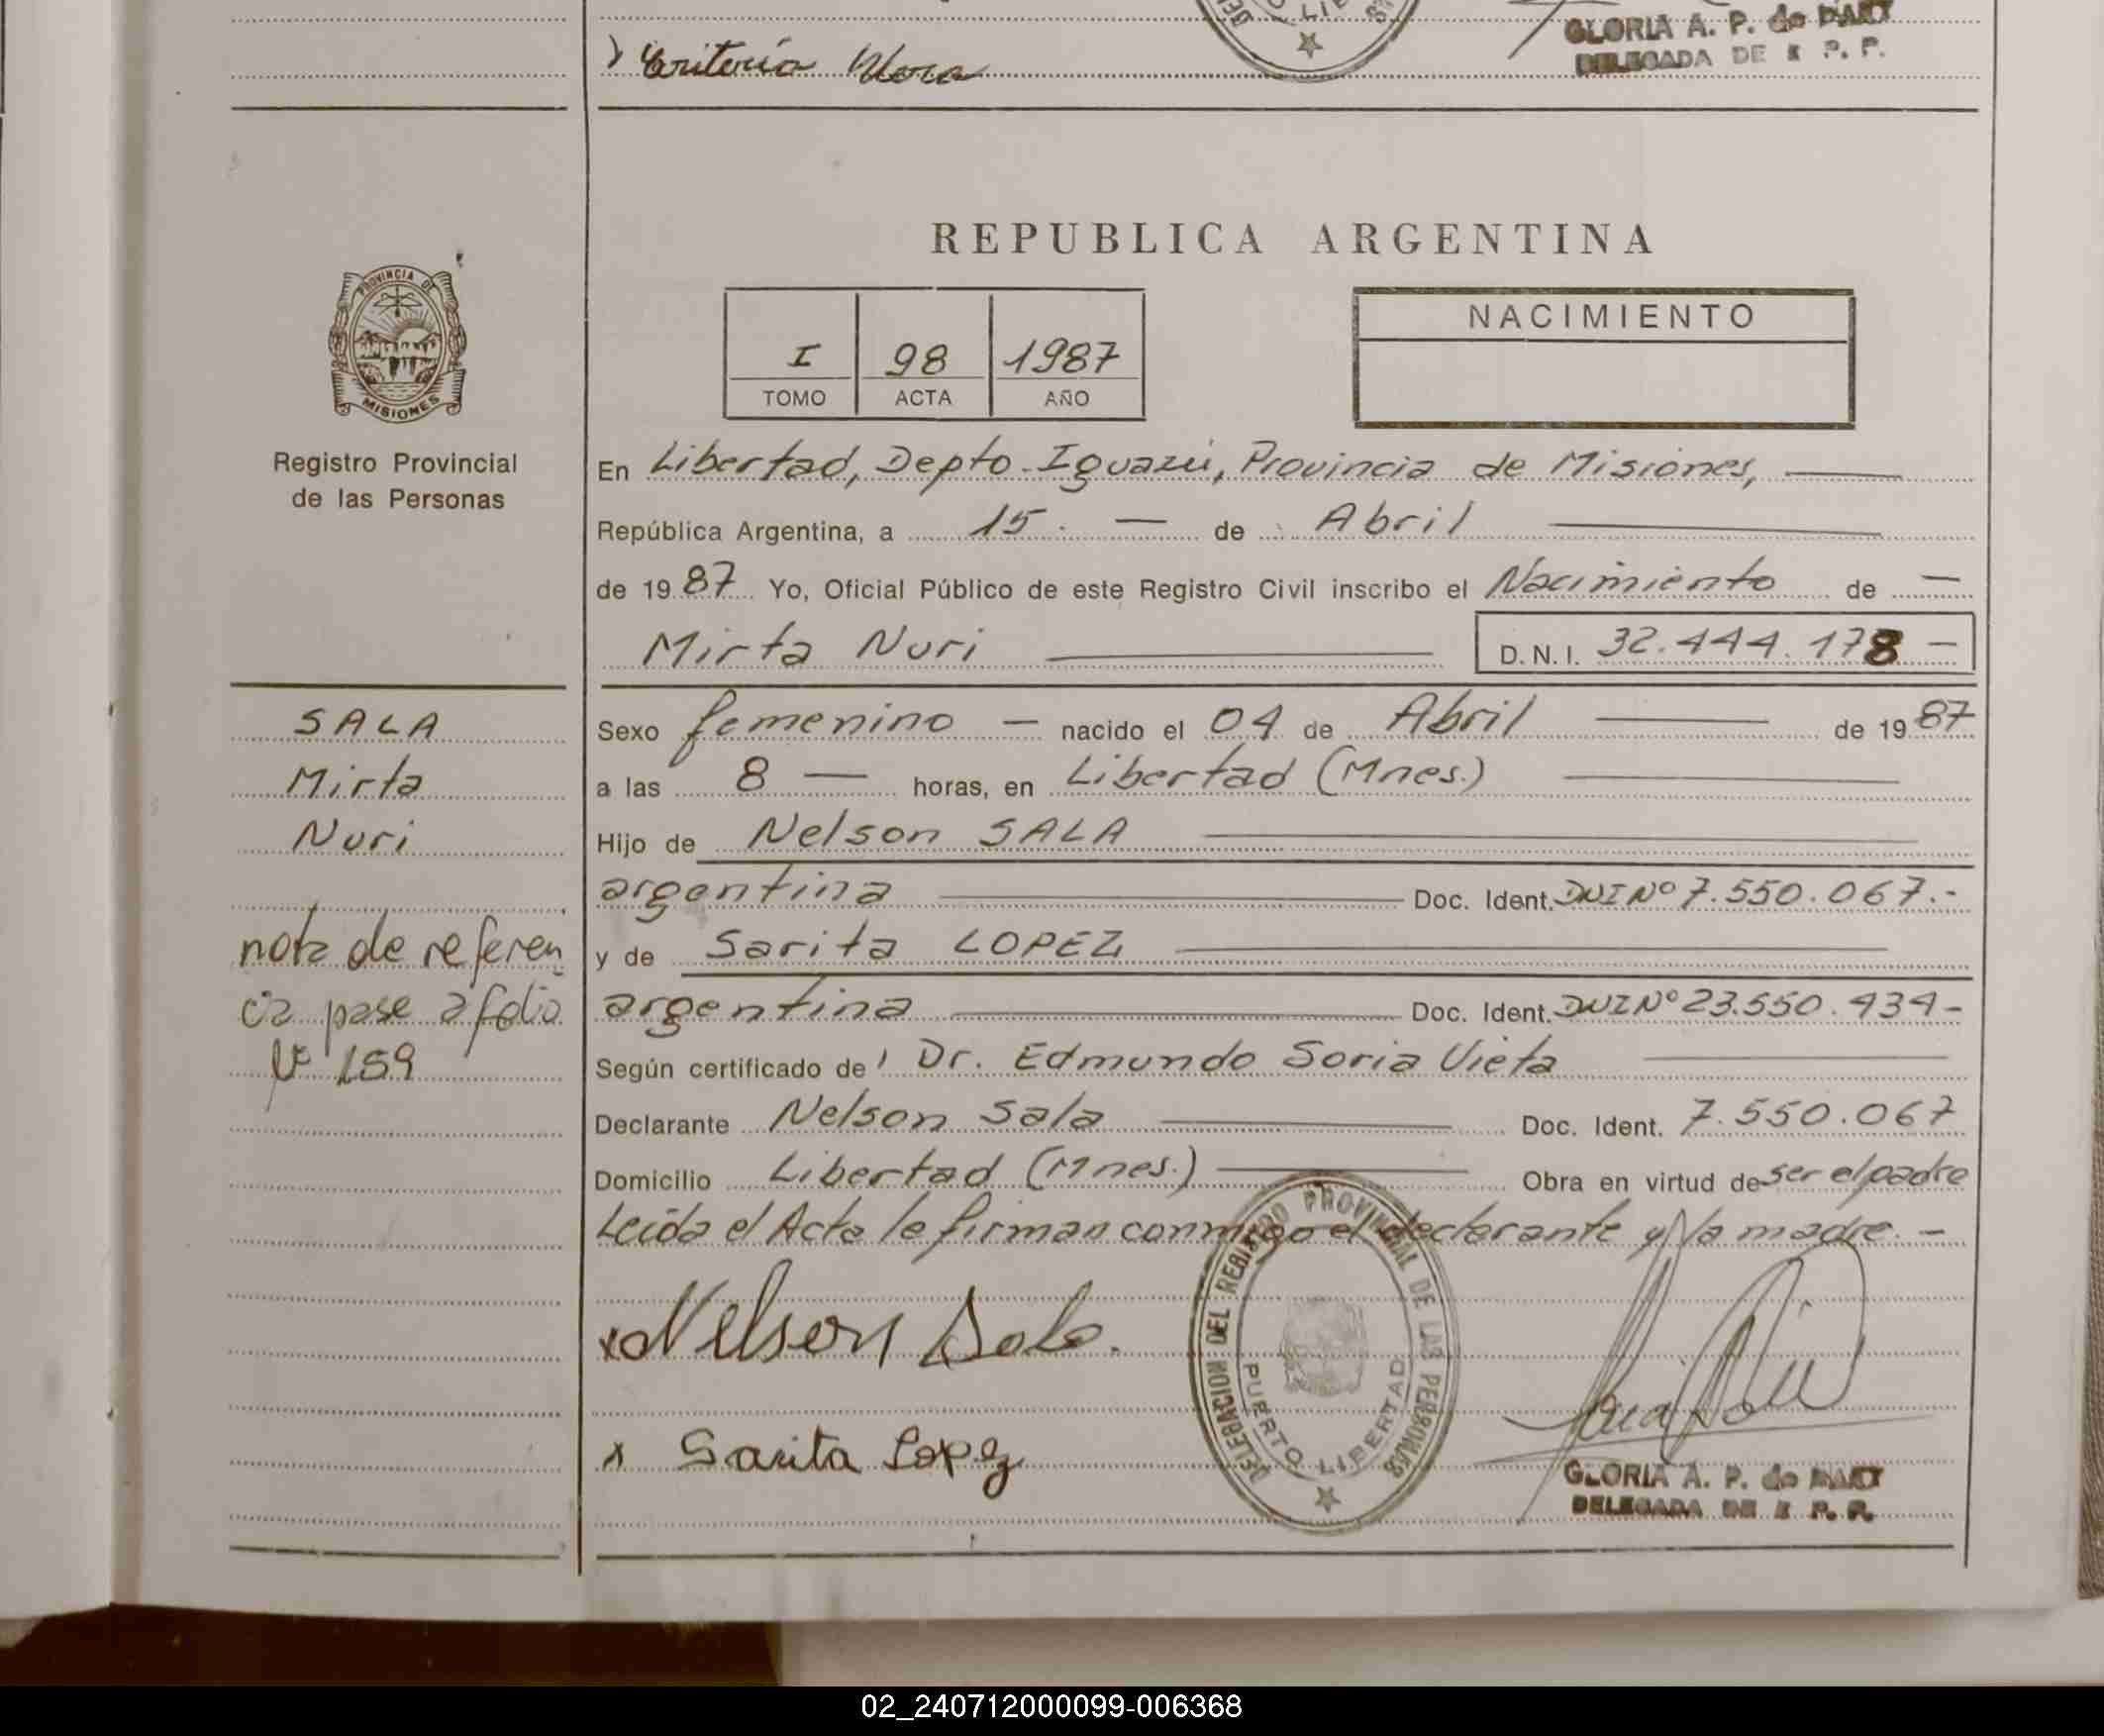 Mora
GLORIA A. P. de
DELEGADA DE R P. P.
REPUBLICA ARGENTINA
PROVINCIA DE
MISIONES
Registro Provincial
de las Personas
I 98 1987
TOMO ACTA AÑO
NACIMIENTO
En Libertad, Depto. Iguazú, Provincia de Misiones,
República Argentina, a 15 de Abril
de 1987 Yo, Oficial Público de este Registro Civil inscribo el Nacimiento de
Mirta Nuri D.N.I. 32.444.178
SALA
Mirta
Nuri
nota de referen
cia pase a folio
Nº 159
Sexo femenino nacido el 04 de Abril de 1987
a las 8 horas, en Libertad (Mnes.)
Hijo de Nelson SALA
argentina Doc. Ident. DNI Nº 7.550.067.-
y de Sarita LOPEZ
argentina Doc. Ident. DNI Nº 23.550.434-
Según certificado de Dr. Edmundo Soria Vieta
Declarante Nelson Sala Doc. Ident. 7.550.067
Domicilio Libertad (Mnes.) Obra en virtud de ser el padre
Leida el Acta le firman conmigo el declarante y la madre. -
x Nelson Sala.
x Sarita Lopez
DELEGACION DEL REGISTRO PROVINCIAL DE LAS PERSONAS
PUERTO LIBERTAD
GLORIA A. P. de
DELEGADA DE R P. P.
02_240712000099-006368